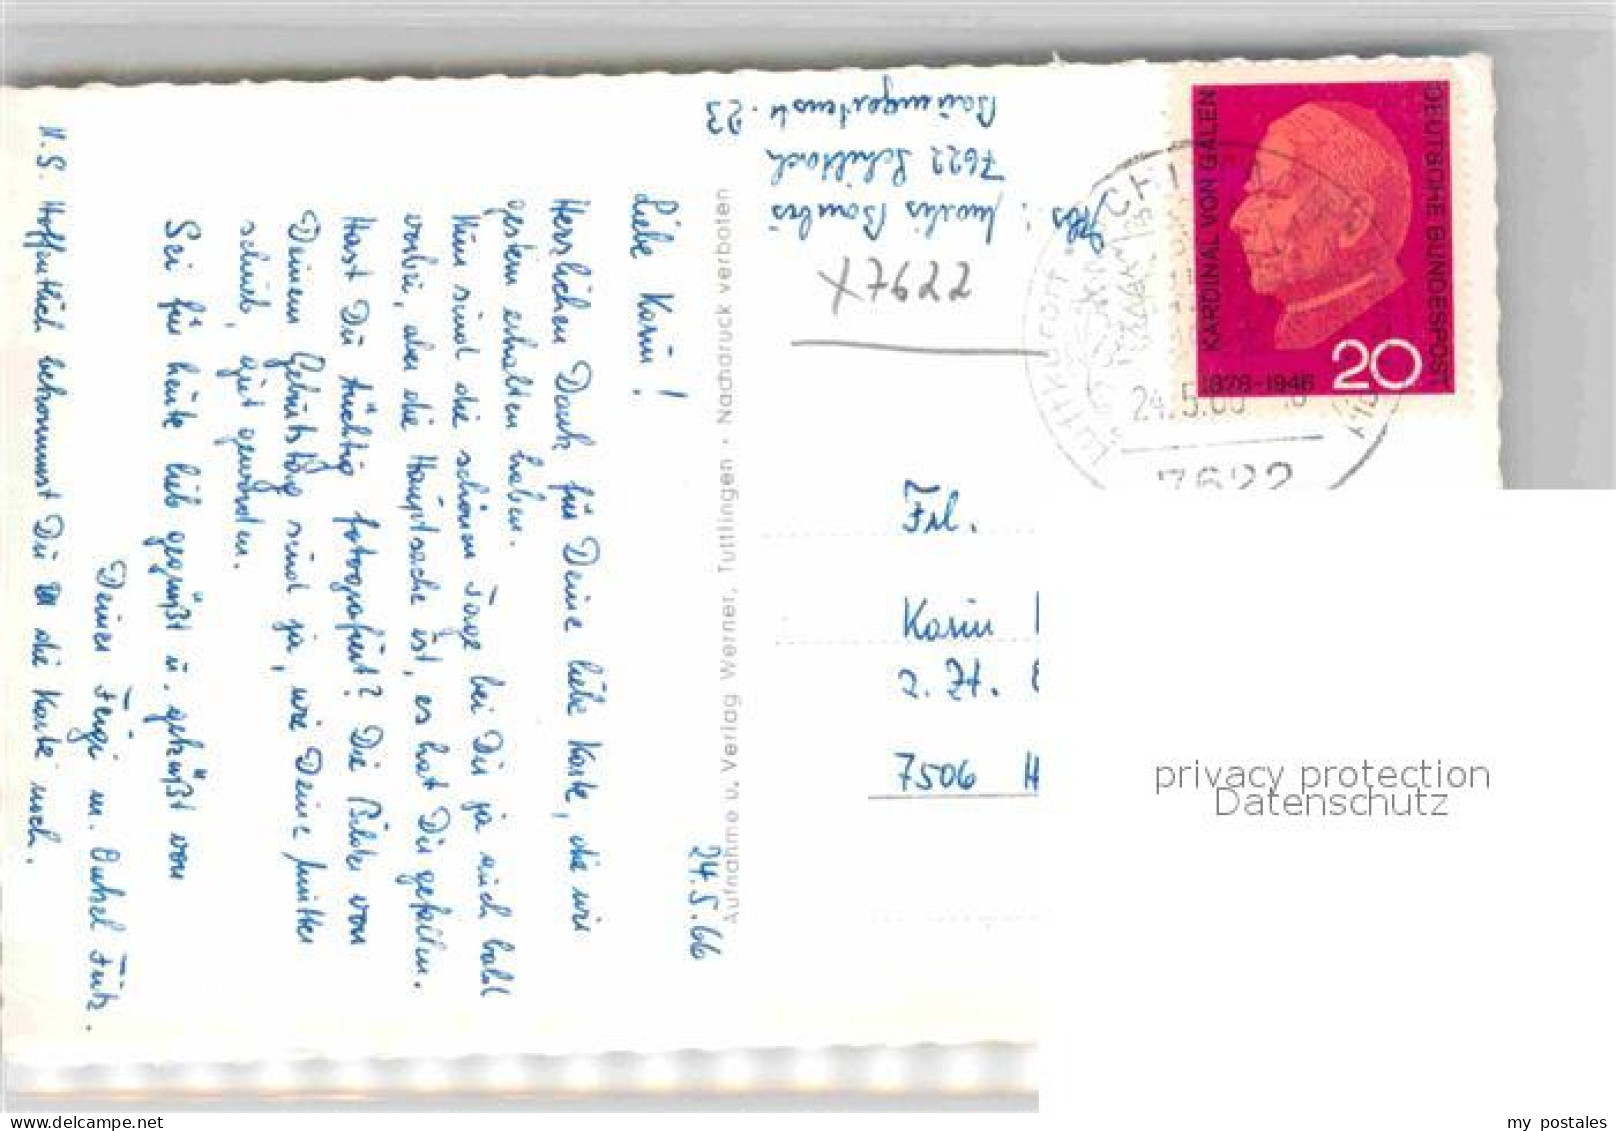 24.5.66
Liebe Karin!
Herzlichen Dank für Deine liebe Karte, die wir
gestern erhalten haben.
Nun sind die schönen Tage bei Dir ja auch bald
vorbei, aber die Hauptsache ist, es hat Dir gefallen.
Hast Du tüchtig fotografiert? Die Bilder von
Deinem Geburtstag sind ja, wie Deine Mutter
schrieb, gut geworden.
Sei für heute lieb gegrüßt u. geküßt von
Deiner u. Onkel Fritz.
N.S. Hoffentlich bekommst Du die Karte noch.
Aufnahme u. Verlag Werner, Tuttlingen · Nachdruck verboten
Abs.:
7622 Schiltach
23
2297X
DEUTSCHE BUNDESPOST
KARDINAL VON GALEN
1878-1946
20
LUFTKURORT
24.5.66
7622
Frl.
Karin
z. Zt.
7506 H
privacy protection
Datenschutz
my postales
www.delcampe.net